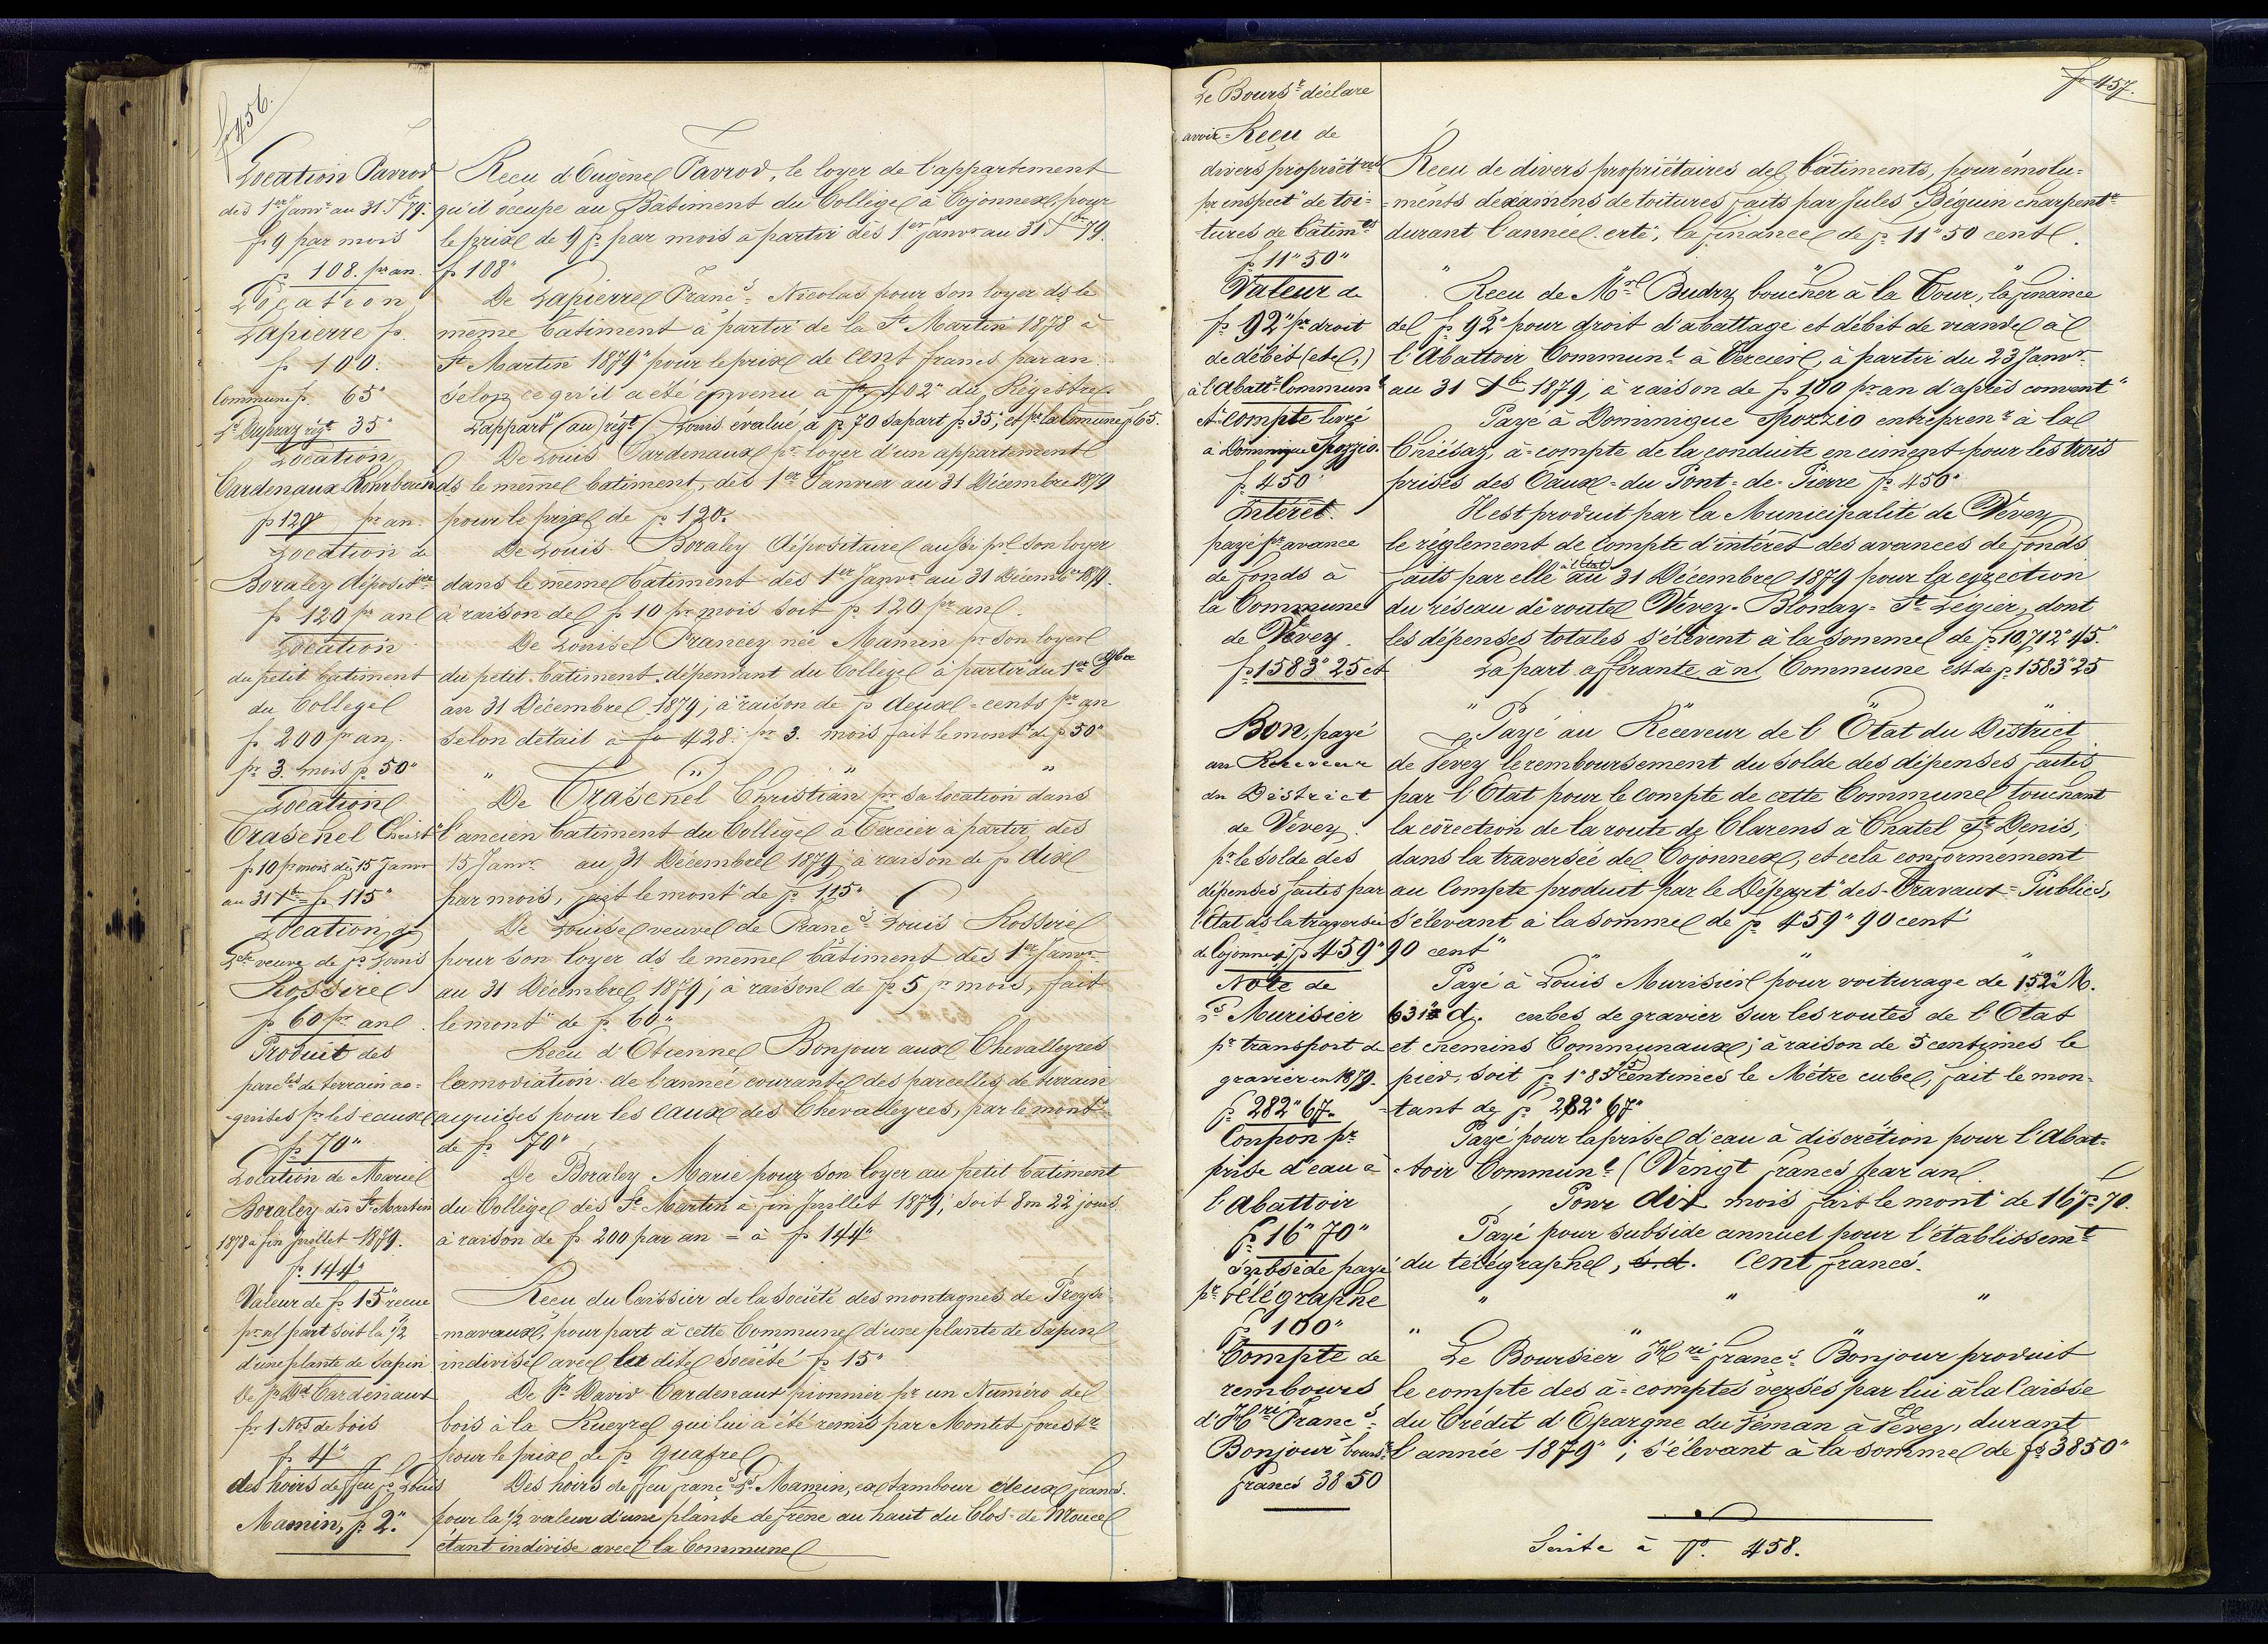 fo 456.
Location Pavrod
dès 1er Janvr au 31 Xbre 79.
f 9 par mois
f 108. pr an.
Location
Lapierre fs.
f 100.
Commune f. 65"
Ls Dupraz régt 35"
Location
Cardenaux Rohrbach
f 120" pr an.
Location de
Boraley déposit.re
f 120 pr an
Location
du petit batiment
du College
f 200 pr an.
pr 3. mois f 50"
Location
Traschel Christn
f 10 p mois dès 15 Janvr
au 31 Xbre = f 115"
Location de
Lse veuve de fs Louis
Rossire
f 60 pr an.
Produit des
parcles de terrain ac=
=quises pr les eaux
f 70"
Location de Marie
Boraley dès St Martin
1878 à fin juillet 1879.
f. 144"
Valeur de f 15" recue
pr n/ part soit la 1/2
d'une plante de sapin
De fs Dd Cardenaux
pr 1 No de bois
f 4"
des hoirs de ffeu fs Louis
Mamin, f. 2."
Recu d'Eugène Pavrod, le loyer de l'appartement
qu'il occupe au Bâtiment du College à Cojonnex, pour
le prix de 9 f. par mois à partir dès 1er Janvr au 31 Xbre 79.
f 108"
De Lapierre Francs = Nicolas pour son loyer ds le
même batiment à partir de la St Martin 1878 à
St Martin 1879" pour le prix de cent francs par an
selon ce qu'il a été convenu à fo 402" du Régistre.
L'appartt (au) régt (Louis évalué à f. 70 sa part f. 35", et pr la Comune f. 65.
De Louis Cardenaux pr loyer d'un appartement
ds le meme batiment, dès 1er Janvier au 31 Décembre 1879
pour le prix de f 120.
De Louis Boraley dépositaire aussi pr son loyer
dans le même batiment dès 1er Janvr au 31 Décembre 1879.
à raison de f 10 pr mois soit f. 120 pr an.
De Louise Francey née Mamin pr son loyer
du petit batiment dépendant du College à partir du 1er 8bre
au 31 Décembre 1879, à raison de f deux=cents pr an
selon detail à fo 428. pr 3. mois fait le mont de f 50"
" " " "
De Traschel Christian pr sa location dans
l'ancien batiment du College à Tercier à partir dès
15 Janvr au 31 Décembre 1879, à raison de f. dix
par mois, fait le mont de f. 115"
De Louise veuve de Francs Louis Rossire
pour son loyer ds le meme bâtiment dès 1er Janvr
au 31 Décembre 1879; à raison de f. 5 pr mois, fait
le mont de f. 60"
Recu d'Etienne Bonjour aux Chevalleyres
l'amodiation de l'année courante des parcelles de terrain
acquises pour les eaux des Chevalleyres, par le mont
de f. 70"
De Boraley Marie pour son loyer au petit batiment
du College dès St Martin à fin Juillet 1879; soit 8m 22 jours
à raison de f. 200 par an = à f. 144"
Recu du Caissier de la Société des montagnes de Preysi=
=mavaux, pour part à cette Commune d'une plante de sapin
indivise avec la dite société f. 15"
De Fs David Cardenaux pionnier pr un Numéro de
bois à la Rueyre qui lui a été remis par Montet forestr
pour le prix de f. quatre
Des hoirs de ffeu francs Ls Mamin, ex tambour deux francs.
pour la 1/2 valeur d'une plante de frêne au haut du Clos=de Moucel
étant indivise avec la Commune
fo 457.
Le Boursr déclare
avoir = Recu de
divers propriétres
pr inspectn de toi=
tures de bâtimts
f. 11" 50"
Valeur de
f. 92" pr droit
de débit (etc.)
à l'Abattr Communl
A=compte livré
à Dominique Spozzio.
f. 450"
Intérêt
payé pr avance
de fonds à
la Commune
de Vevey
f. 1583" 25 ct
Bon, payé
au Receveur
du District
de Vevey.
pr le solde des
dépenses faites par
l'Etat ds la traversée
de Cojonnex, f. 459" 90 cent"
Note de
Ls Murisier
pr transport de
gravier en 1879.
f. 282" 67.
Coupon pr
prise d'eau à
l'Abattoir
f. 16" 70"
Subside payé
pr télégraphe
f. 100"
Compte de
rembours
d'Hri Francs
Bonjour boursr
francs 3850
Recu de divers propriétaires de bâtiments, pour émolu=
=ments d'examens de toitures faits par Jules Béguin charpentr
durant l'année crte, la finance de f. 11" 50 cent.
" " " "
Recu de Mrl Budry boucher à la Tour, la finance
de f. 92" pour droit d'abattage et débit de viande à
l'Abattoir Communl à Tercier, à partir du 23 Janvr
au 31 Xbre 1879, à raison de f 100 pr an d'après convent"
Payé à Dominique Spozzio entreprenr à la
Chiésaz, à=compte de la conduite en ciment pour les trois
prises des Eaux=du Pont=de=Pierre f. 450"
Il est produit par la Municipalité de Vevey
le réglement de compte d'intérêt des avances de fonds
faits par elle à l'Etat au 31 Décembre 1879 pour la corection
du réseau de route Vevey=Blonay=St Légier, dont
les dépenses totales s'élèvent à la somme de f. 10,712" 45."
La part afférante à n/ Commune est de f. 1583" 25
" " "
Payé au Receveur de l'Etat du District
de Vevey le remboursement du solde des dépenses faites
par l'Etat pour le compte de cette Commune touchant
la corection de la route de Clarens à Chatel St Denis,
dans la traversée de Cojonnex, et cela conformément
au Compte produit par le Départt des=Travaux=Publics,
s'élevant à la somme de f. 459" 90 cent
" " "
Payé à Louis Murisier pour voiturage de 152" M.
631" d. cubes de gravier sur les routes de l'Etat
et chemins Communaux; à raison de 5 centimes le
pied, soit f. 1" 85 centimes le Mêtre cube, fait le mon=
=tant de f. 282" 67"
Payé pour la prise d'eau à discrétion pour l'Abat=
=toir Communl (Vingt francs par an
Pour dix mois fait le mont de 16" f. 70.
Payé pour subside annuel pour l'établissemt
du télégraphe, s.d. Cent francs.
" " "
" " "
Le Boursier Hri francs Bonjour produit
le compte des à=comptes versés par lui à la Caisse
du Crédit d'Epargne du Léman à Vevey, durant
l'année 1879"; s'élevant à la somme de fs 3850"
Suite à fo. 458.